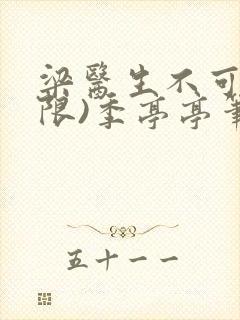 梁醫生不可
限)季亭亭筆
五十一一